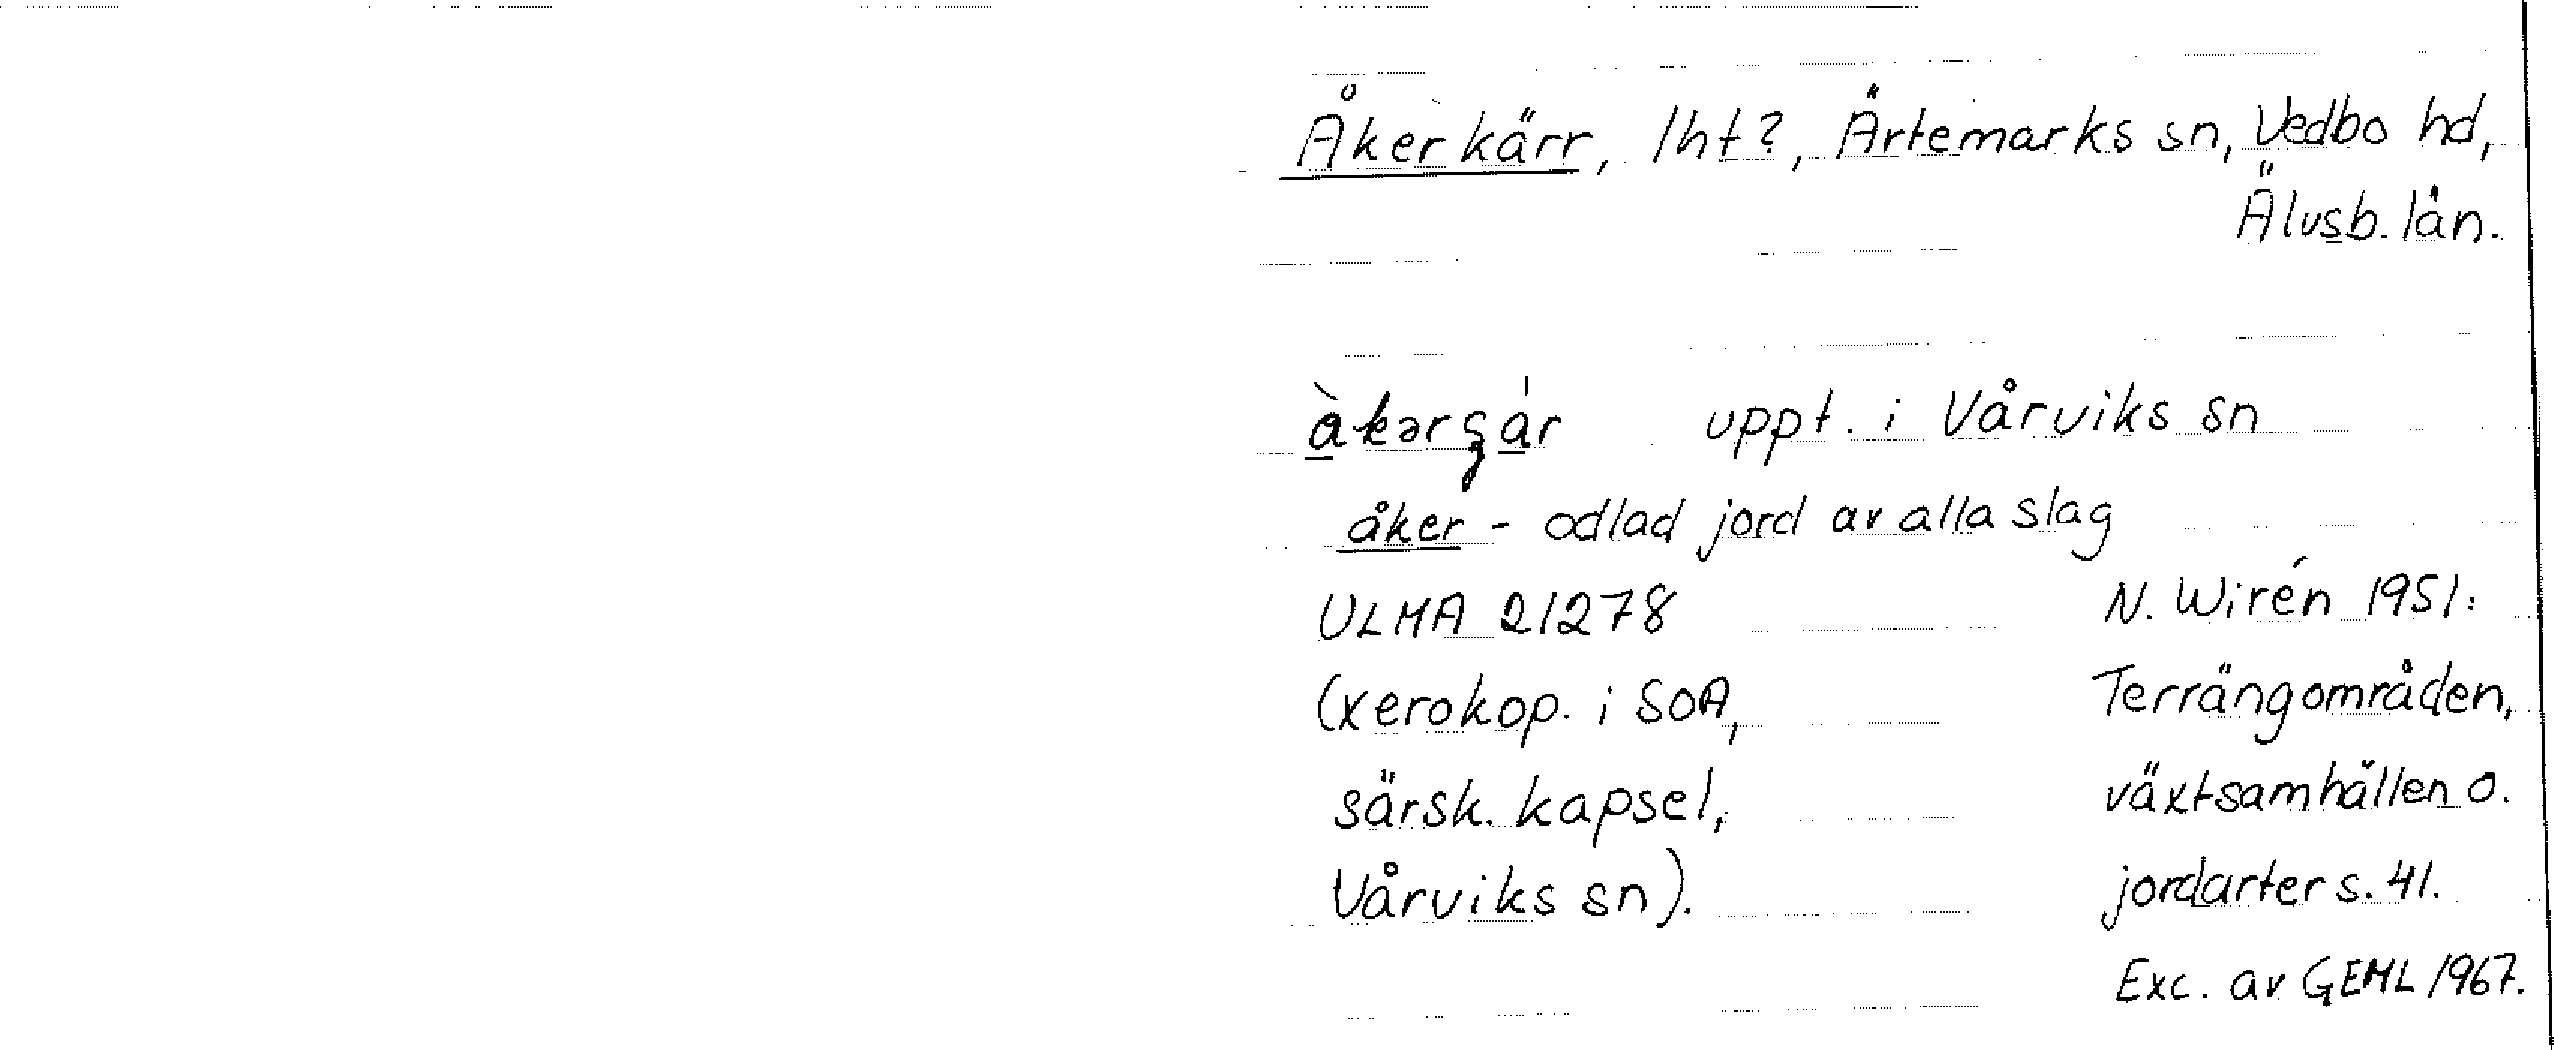 Åkerkärr, lht?, Ärtemarks sn, Vedbo hd,
Älvsb. län.
uppt. i Vårviks sn
åker - odlad jord av alla slag
ULMA 21278
(xerokop. i SOA,
särsk. kapsel,
Vårviks sn).
N. Wirén 1951:
Terrängområden,
växtsamhällen o.
jordarter s. 41.
Exc. av GEML 1967.